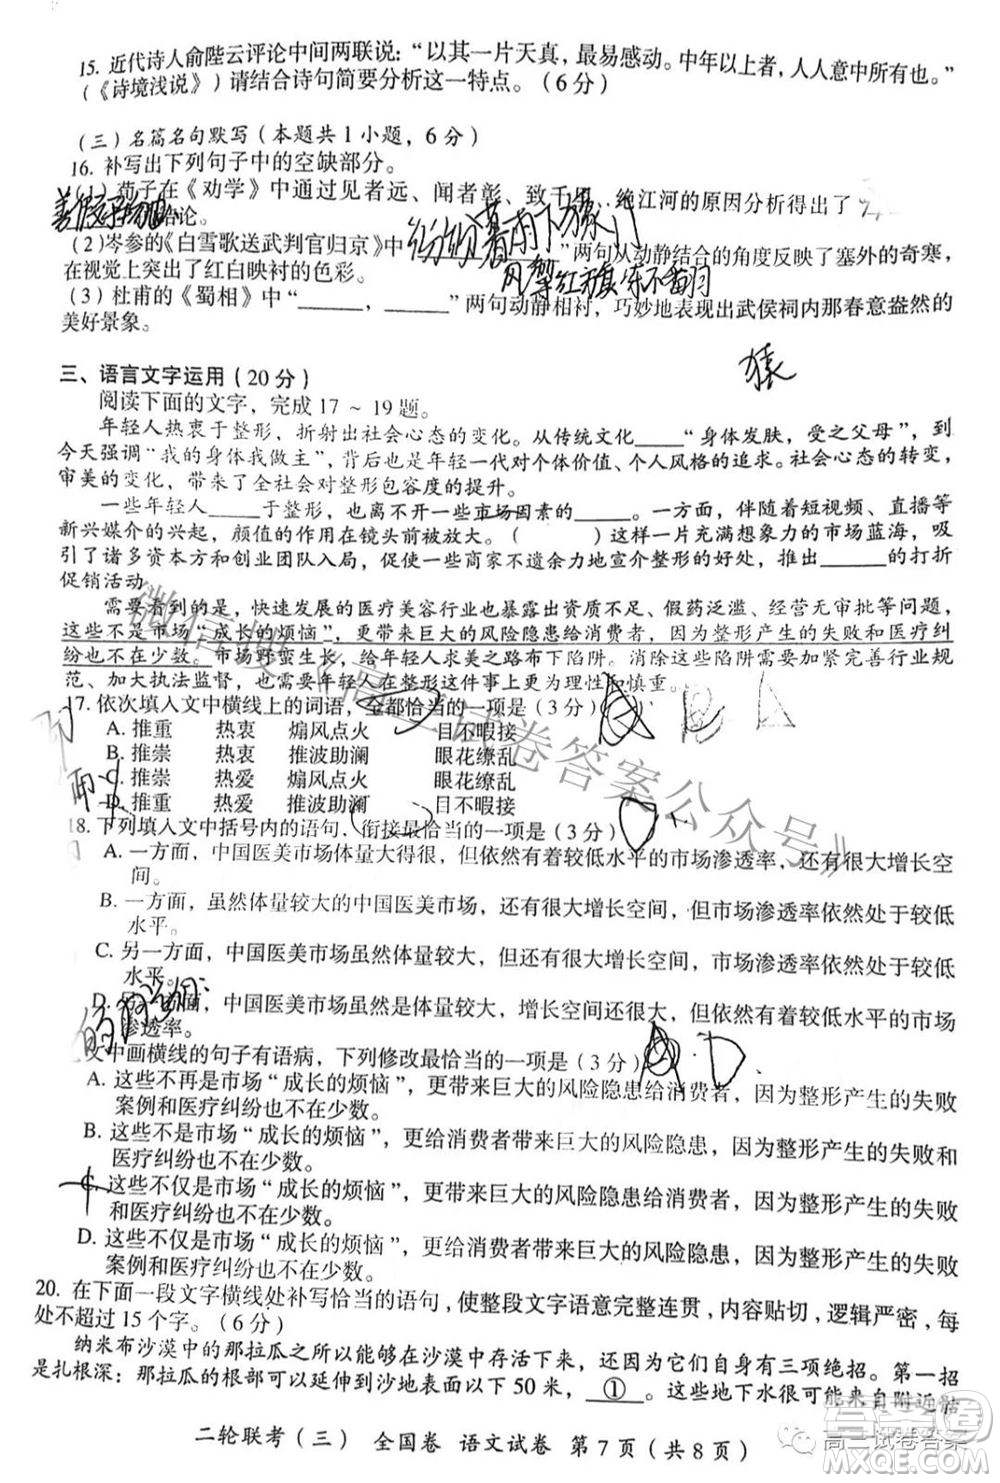 15. 近代诗人俞陛云评论中间两联说：“以其一片天真，最易感动。中年以上者，人人意中所有也。”
（《诗境浅说》）请结合诗句简要分析这一特点。（6分）
（三）名篇名句默写（本题共1小题，6分）
16. 补写出下列句子中的空缺部分。
荀子在《劝学》中通过见者远、闻者彰、致千里、绝江河的原因分析得出了
结论。
（2）岑参的《白雪歌送武判官归京》中“纷纷暮雪下辕门
风掣红旗冻不翻
”两句从动静结合的角度反映了塞外的奇寒，
在视觉上突出了红白映衬的色彩。
（3）杜甫的《蜀相》中“______，______”两句动静相衬，巧妙地表现出武侯祠内那春意盎然的
美好景象。
猿
三、语言文字运用（20分）
阅读下面的文字，完成17～19题。
年轻人热衷于整形，折射出社会心态的变化。从传统文化____“身体发肤，受之父母”，到
今天强调“我的身体我做主”，背后也是年轻一代对个体价值、个人风格的追求。社会文化对
审美的变化，带来了全社会对整形包容度的提升。
一些年轻人____于整形，也离不开一些市场因素的____。一方面，伴随着短视频、直播等
新兴媒介的兴起，颜值的作用在镜头前被放大。（　　　）这样一片充满想象力的市场蓝海，吸
引了诸多资本方和创业团队入局，促使一些商家不遗余力地宣传整形的好处，推出____的打折
促销活动
需要看到的是，快速发展的医疗美容行业也暴露出资质不足、假药泛滥、经营无审批等问题，
这些不是市场“成长的烦恼”，更带来巨大的风险隐患给消费者，因为整形产生的失败和医疗纠
纷也不在少数。市场野蛮生长，给年轻人求美之路布下陷阱。消除这些陷阱需要加紧完善行业规
定，加大执法监督，也需要年轻人在整形这件事上更多的理性和慎重。
17. 依次填入文中横线上的词语，全都恰当的一项是（3分）
A. 推重　热衷　煽风点火　目不暇接
B. 推崇　热衷　推波助澜　眼花缭乱
C. 推崇　热爱　煽风点火　眼花缭乱
D. 推重　热爱　推波助澜　目不暇接
18. 下列填入文中括号内的语句，衔接最恰当的一项是（3分）
A. 一方面，中国医美市场体量大得很，但依然有着较低水平的市场渗透率，还有很大增长空
间。
B. 一方面，虽然体量较大的中国医美市场，还有很大增长空间，但市场渗透率依然处于较低
水平。
C. 另一方面，中国医美市场虽然体量较大，还有很大增长空间，市场渗透率依然处于较低
水平。
D. 另一方面，中国医美市场虽然是体量较大，增长空间还很大，但依然有着较低水平的市场
渗透率。
文中画横线的句子有语病，下列修改最恰当的一项是（3分）
A. 这些不再是市场“成长的烦恼”，更带来巨大的风险隐患给消费者，因为整形产生的失败
案例和医疗纠纷也不在少数。
B. 这些不是市场“成长的烦恼”，更给消费者带来巨大的风险隐患，因为整形产生的失败和
医疗纠纷也不在少数。
这些不仅是市场“成长的烦恼”，更带来巨大的风险隐患给消费者，因为整形产生的失败
和医疗纠纷也不在少数。
D. 这些不仅是市场“成长的烦恼”，更给消费者带来巨大的风险隐患，因为整形产生的失败
案例和医疗纠纷也不在少数。
20. 在下面一段文字横线处补写恰当的语句，使整段文字语意完整连贯，内容贴切，逻辑严密，每
处不超过15个字。（6分）
纳米布沙漠中的那拉瓜之所以能在沙漠中存活下来，与其自身有三项绝招。第一招
是扎根深：那拉瓜的根部可以延伸到沙地表面以下50米，__①__。这些地下水很可能来自附近骷
二轮联考（三）　全国卷　语文试卷　第7页（共8页）
微信搜《高三试卷答案公众号》
高三试卷答案